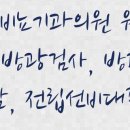 비뇨기과의원
방광검사,
전립선비대